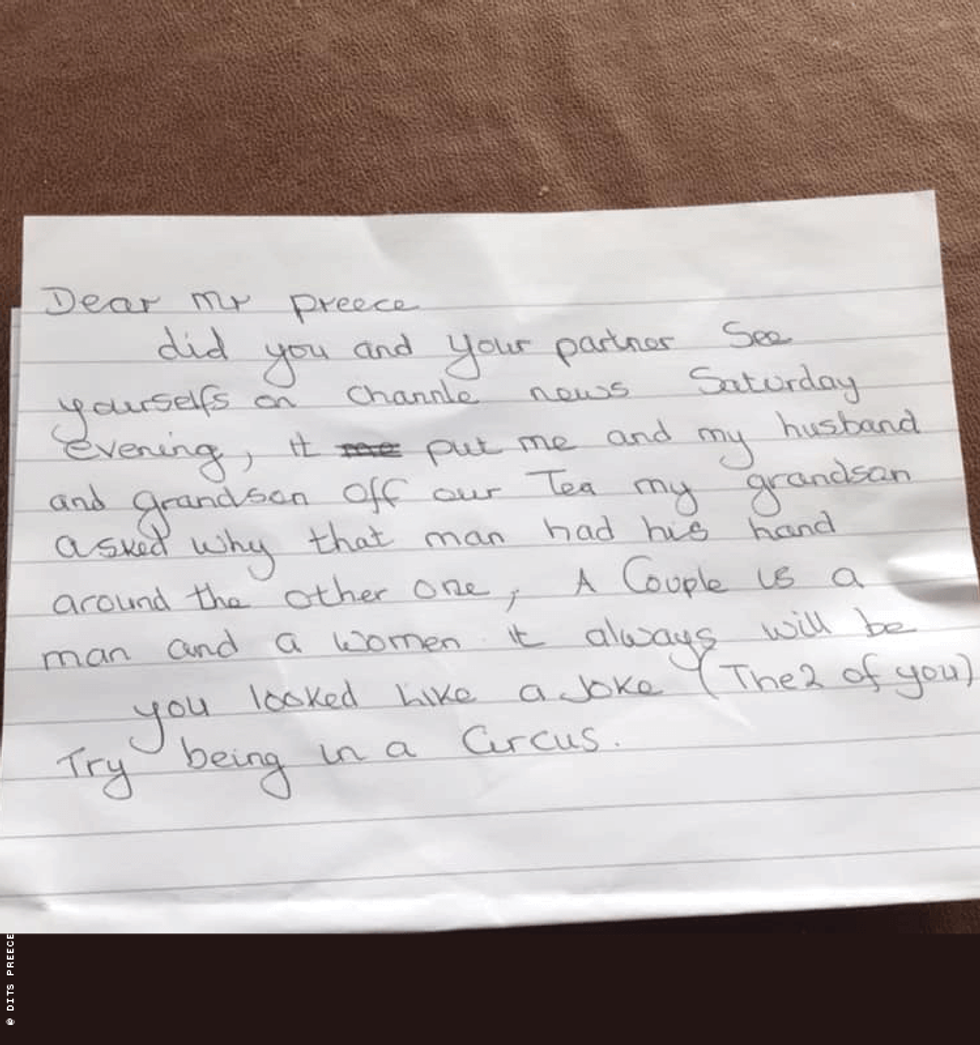 Dear Mr Preece
did you and your partner See
yourselfs on Channle news Saturday
evening, it me put me and my husband
and grandson off our Tea my grandson
asked why that man had his hand
around the other one, A Couple is a
man and a women it always will be
you looked like a Joke (The 2 of you)
Try being in a Circus.
© DITS PREECE